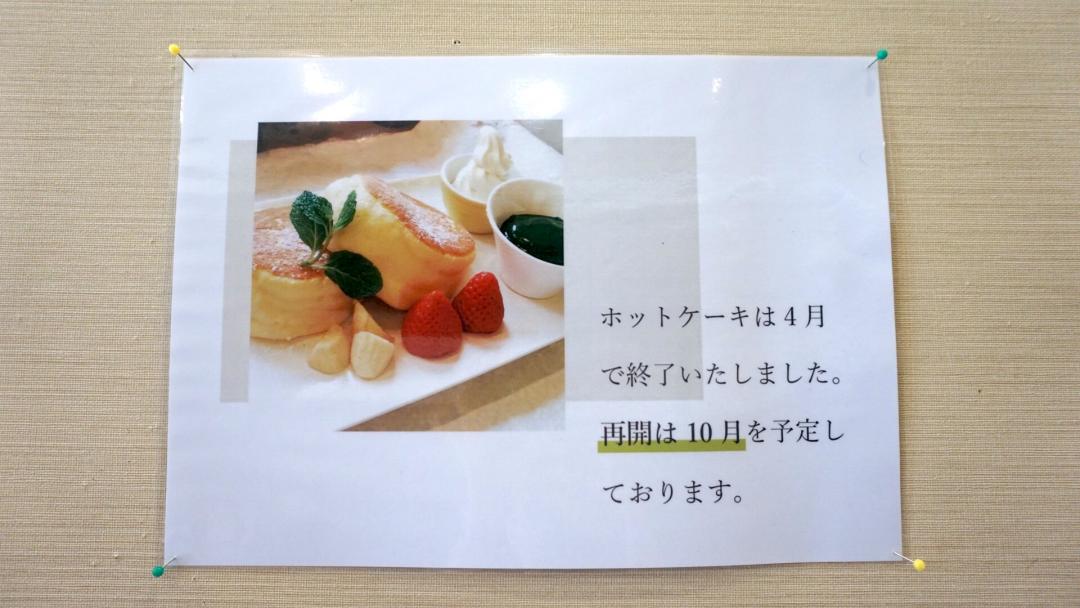 ホットケーキは4月
で終了いたしました。
再開は10月を予定し
ております。